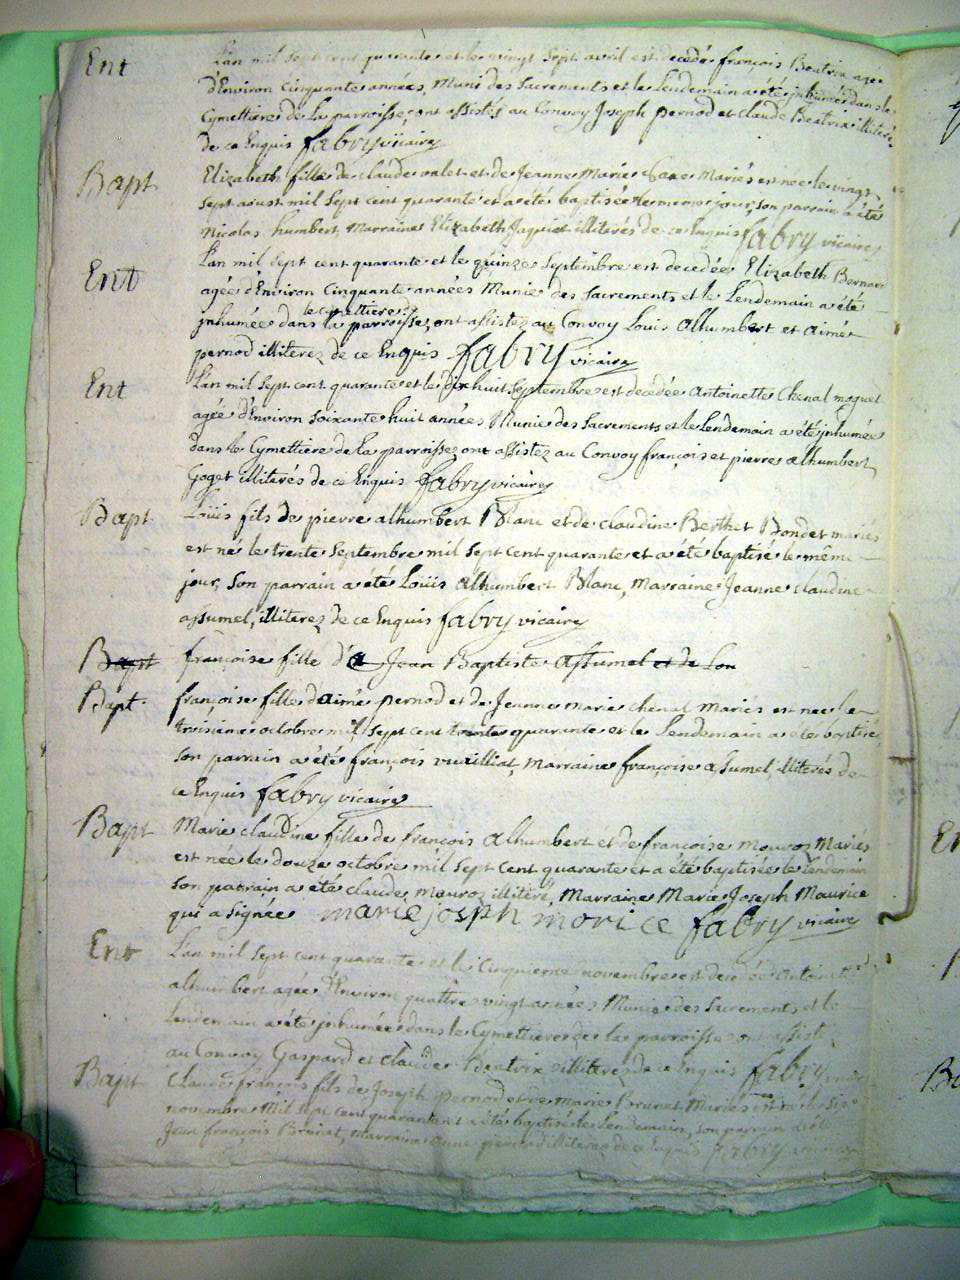 Ent L'an mil sept cent quarante et le vingt sept avril est decedé françois Beatrix agé
d'Environ Cinquante années, Muni des Sacrements et le Lendemain a été jnhumé dans le
Cymettiere de La parroisse, ont assistés au Convoy Joseph pernod et Claude Beatrix illiterés
de ce Enquis fabry vicaire
Bapt Elizabeth fille de claude valet et de Jeanne Marie Mariés est née le vingt
sept aoust mil sept cent quarante et a été baptisée le même jour, son parrain a été
Nicolas humbert, Marraine Elizabeth Jaquet illiterés de ce Enquis fabry vicaire
Ent L'an mil sept cent quarante et le quinze Septembre est decedée Elizabeth Bernard
agée d'Environ Cinquante années Munie des Sacrements et le Lendemain a été
le cymettiere de
jnhumée dans la parroisse, ont assistez au Convoy Louis alhumbert et aimé
pernod illiterez de ce Enquis fabry vicaire
Ent L'an mil sept cent quarante et le dix huit Septembre est decedée antoinette Chenal moguet
agée d'Environ soixante huit années Munie des Sacrements et le Lendemain a été jnhumée
dans le Cymettiere de la parroisse, ont assistez au Convoy françois et pierre alhumbert
Goget illiterés de ce Enquis fabry vicaire
Bapt Loüis fils de pierre alhumbert Blanc et de claudine Berthet Bondet mariés
est né le trente Septembre mil sept cent quarante et a été baptisé le même
jour, son parrain a été Loüis alhumbert Blanc, Marraine Jeanne claudine
assumel, illiterez de ce Enquis fabry vicaire
Bapt françoise fille d'a Jean Baptiste assumel et de Lou
Bapt françoise fille d'aimé pernod et de Jeanne marie chenal mariés est née le
troisieme octobre mil sept cent quarante et le Lendemain a été baptisée,
son parrain a été françois vuilliat, marraine françoise asumel illiterés de
ce Enquis fabry vicaire
Bapt Marie claudine fille de François alhumbert et de françoise mouroz Mariés
est née le douze octobre mil sept cent quarante et a été baptisée le lendemain
son parrain a été claude mouroz illiteré, Marraine Marie Joseph Maurice
qui a signée marie josph morice fabry vicaire
Ent L'an mil sept cent quarante et le Cinquieme novembre est decedée antoinette
alhumbert agée d'Environ quattre vingt années Munie des Sacrements et le
Lendemain a été jnhumée dans le Cymettiere de la parroisse ont assisté
au Convoy Gaspard et claude Beatrix illiterez de ce Enquis fabry vicaire
Bapt Claude françois fils de Joseph pernod et de marie Brunet Mariés est né le six
novembre Mil sept cent quarante et a été baptisé le Lendemain, son parrain a été
Jean françois Brunet, marraine illiterez de ce Enquis fabry vicaire